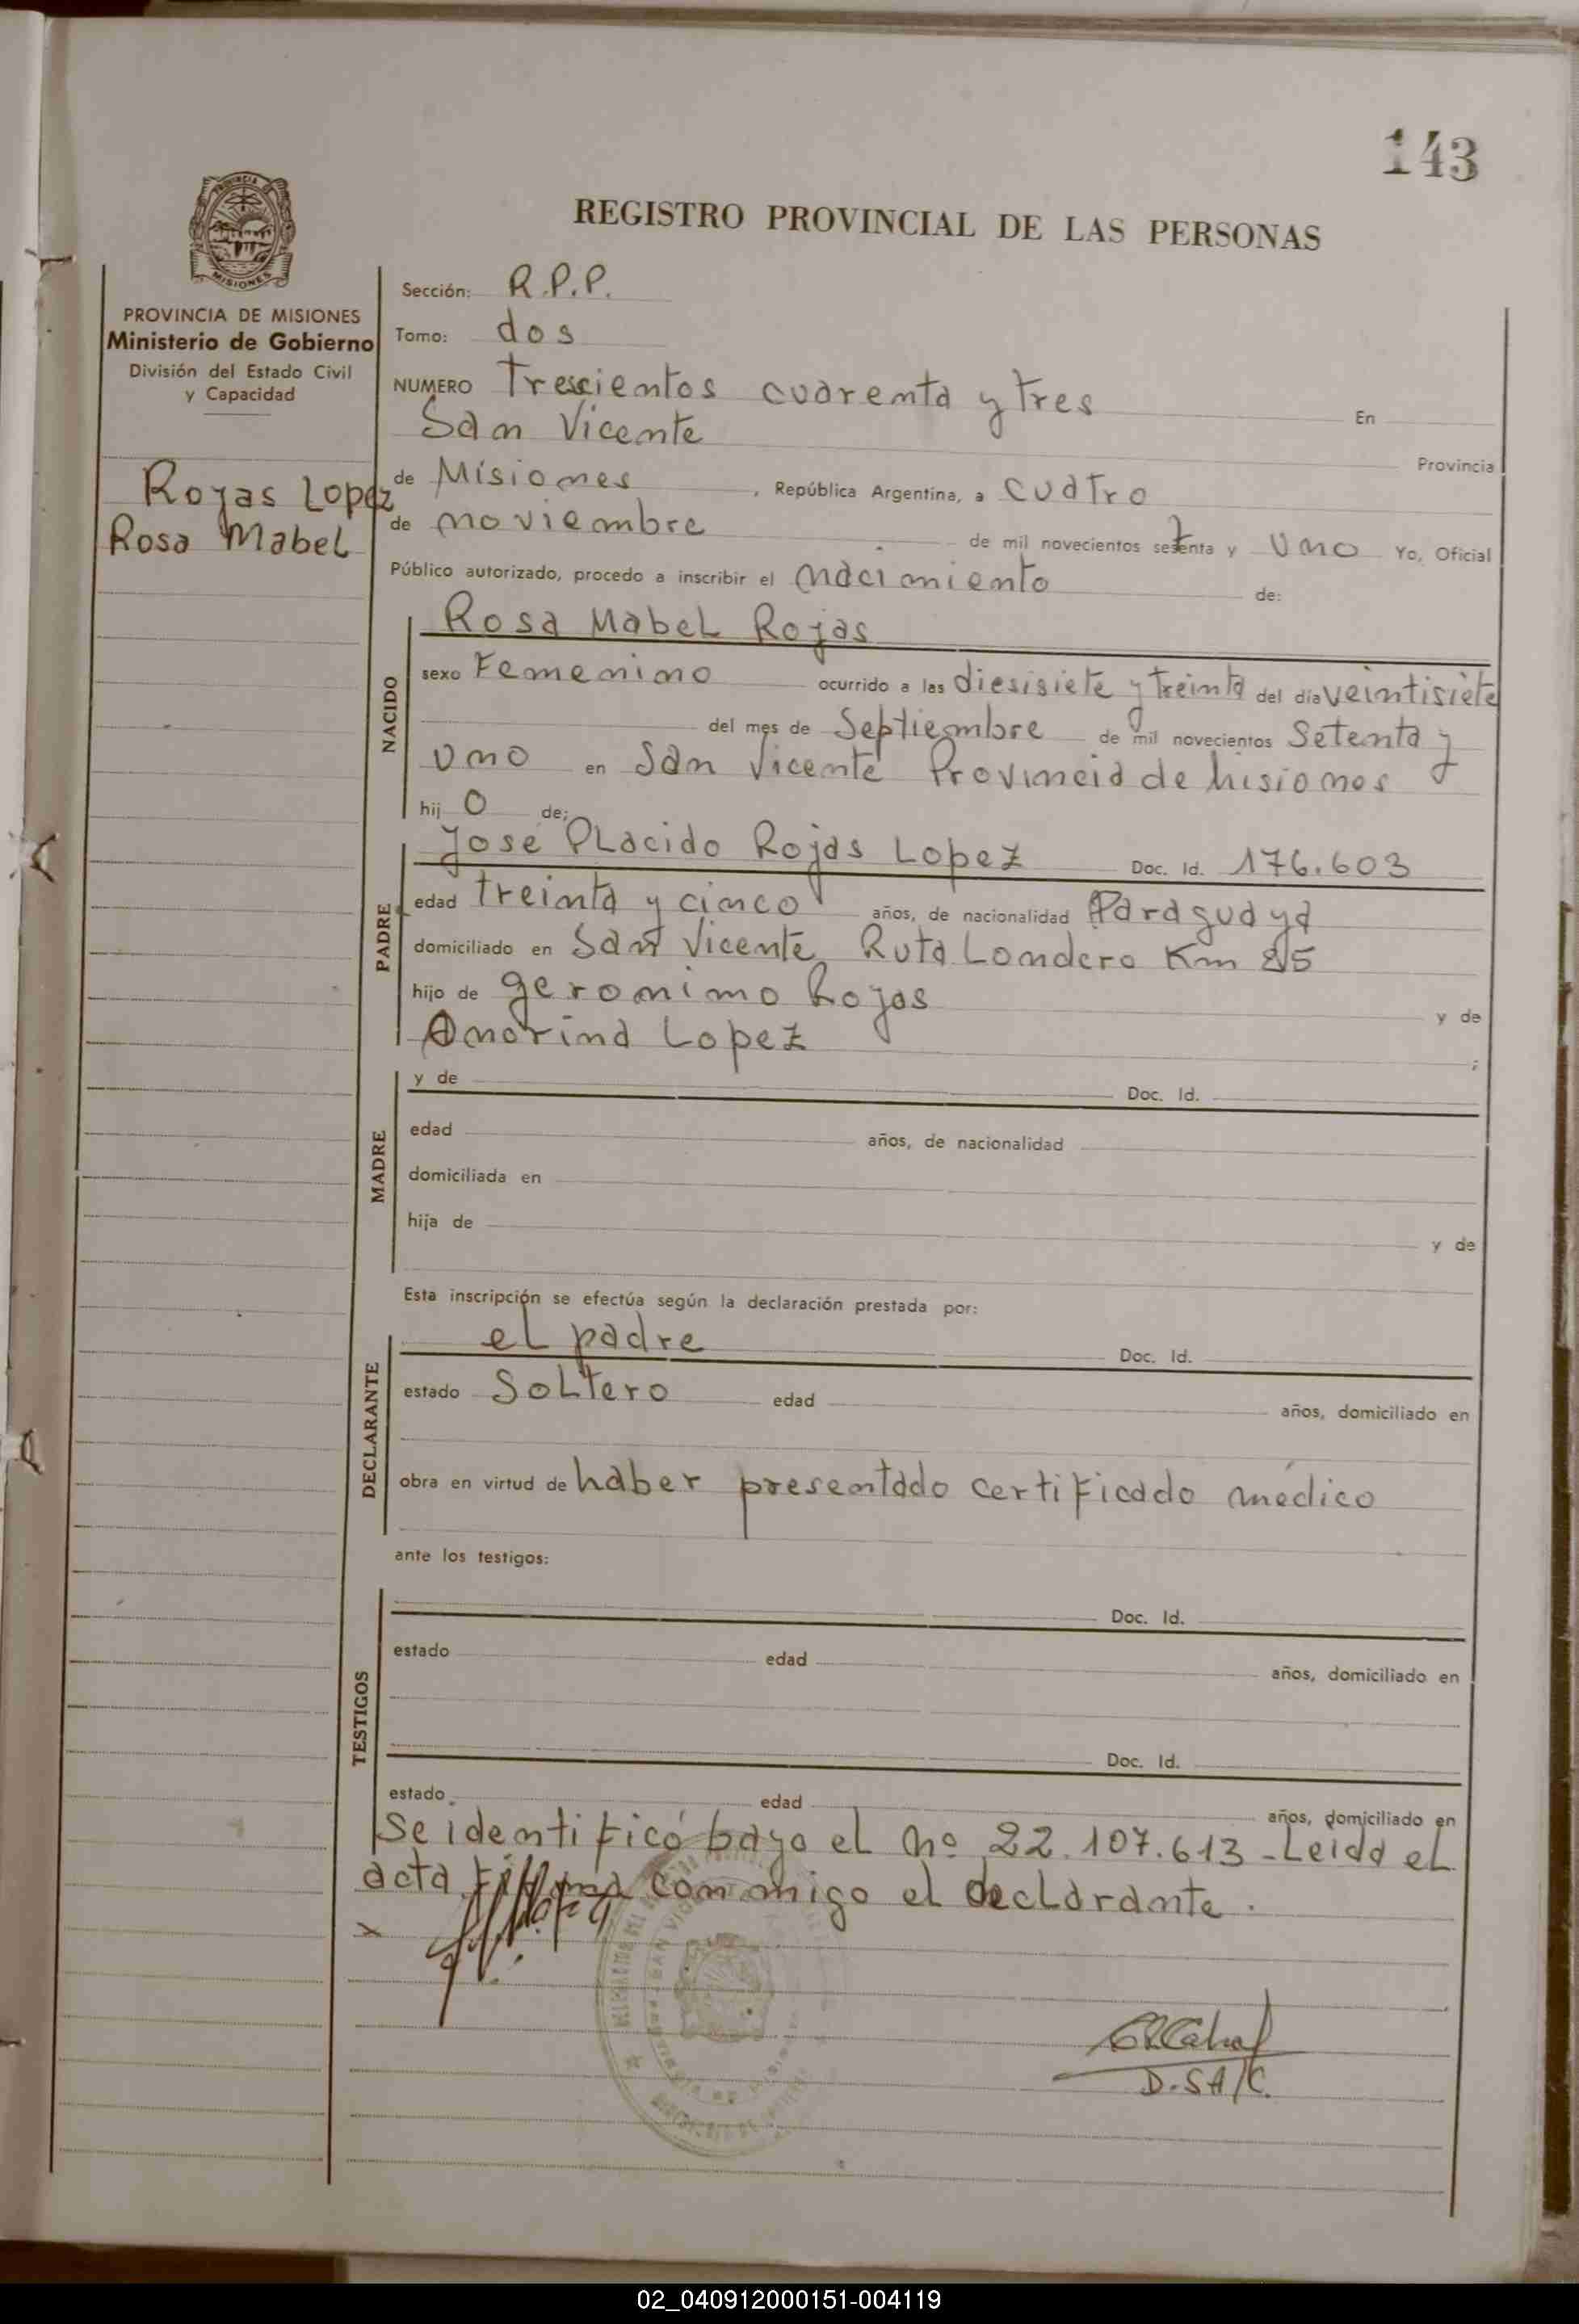 143
REGISTRO PROVINCIAL DE LAS PERSONAS
PROVINCIA DE MISIONES
Ministerio de Gobierno
División del Estado Civil
y Capacidad
Rojas Lopez
Rosa Mabel
Sección: R.P.P.
Tomo: dos
NUMERO Trescientos cuarenta y tres En
San Vicente Provincia
de Misiones, República Argentina, a cuatro
de noviembre de mil novecientos setenta y uno Yo, Oficial
Público autorizado, procedo a inscribir el nacimiento de:
NACIDO
Rosa Mabel Rojas
sexo Femenino ocurrido a las diesisiete y treinta del día veintisiete
del mes de Septiembre de mil novecientos Setenta y
uno en San Vicente Provincia de Misiones
hij o de;
PADRE
José Placido Rojas Lopez Doc. Id. 176.603
edad treinta y cinco años, de nacionalidad Paraguaya
domiciliado en San Vicente Ruta Londero Km
hijo de geronimo Rojas y de
Lopez ;
MADRE
y de Doc. Id.
edad años, de nacionalidad
domiciliada en
hija de y de
Esta inscripción se efectúa según la declaración prestada por:
DECLARANTE
el padre Doc. Id.
estado Soltero edad años, domiciliado en
obra en virtud de haber presentado certificado médico
ante los testigos:
TESTIGOS
Doc. Id.
estado edad años, domiciliado en
Doc. Id.
estado edad años, domiciliado en
Se identificó bajo el nº 22.107.613 - Leida el
acta firma conmigo el declarante.
x
D.SA/C.
02_040912000151-004119